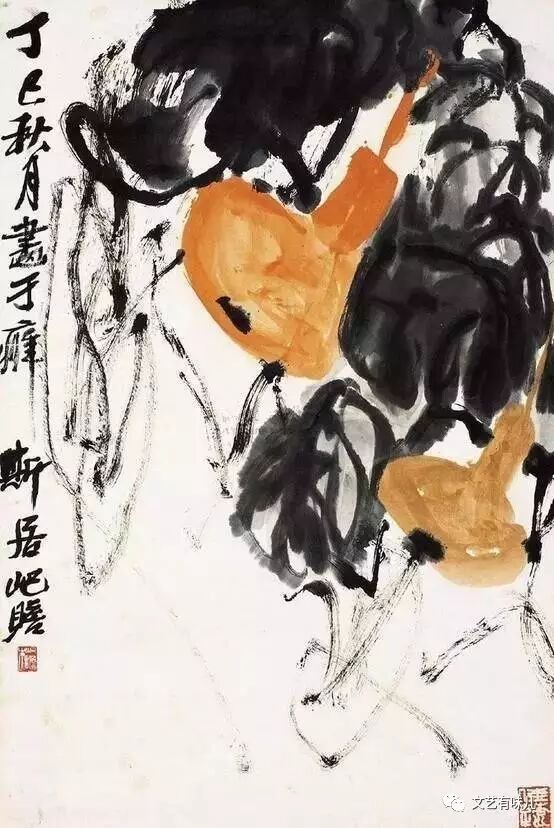 丁巳秋月畫于癖斯居屺瞻
文艺有味儿